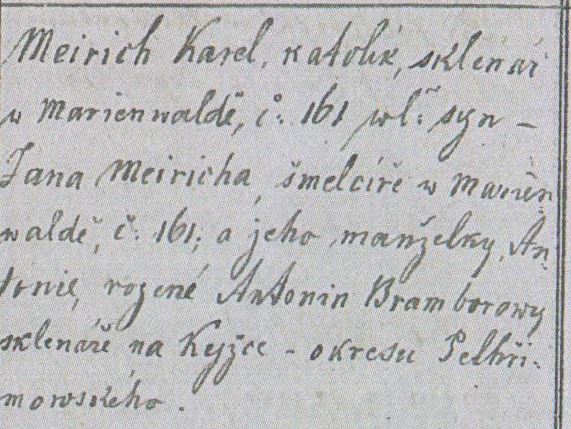 Meirich Karel, katolík, sklenář
w Marienwaldě, č: 161 wl: syn –
Jana Meiricha, šmelcíře w Marien
waldě, č: 161; a jeho manželky, An
tonie, rozené Antonin Bramborowy
sklenáře na Kyjžce – okresu Pelhři-
mowského.